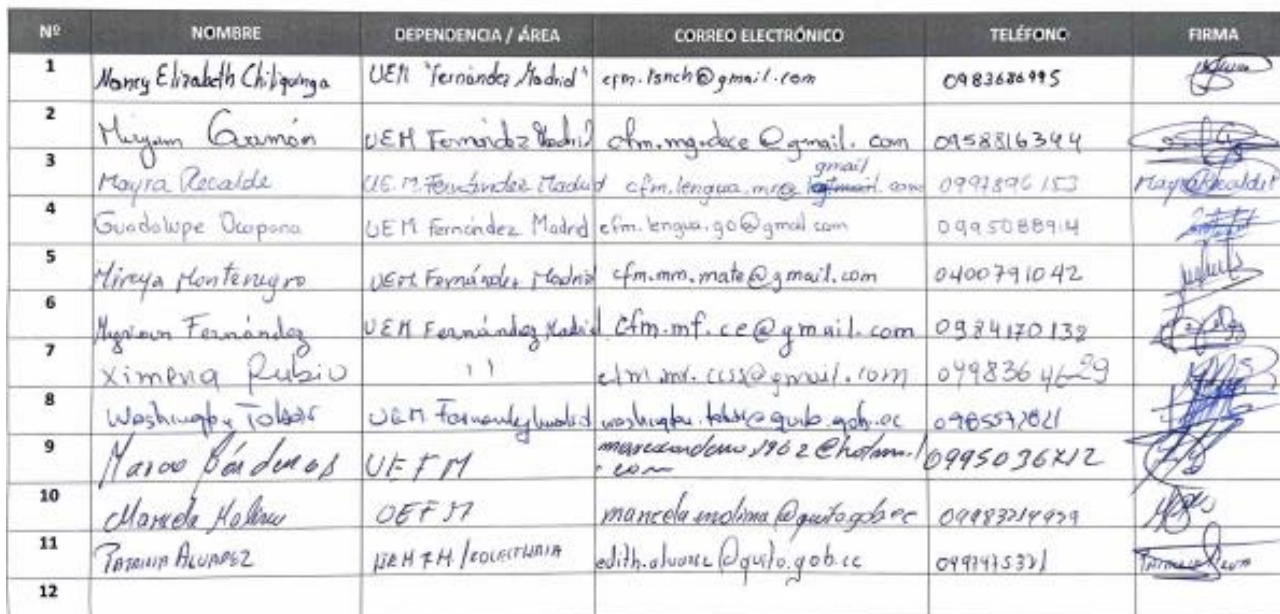 Nº NOMBRE DEPENDENCIA / ÁREA CORREO ELECTRÓNICO TELÉFONO FIRMA
1 Nancy Elizabeth Chiliquinga UEM "Fernández Madrid" cfm.lsnch@gmail.com 0983686995
2 Miryam Guamón UEM Fernández Madrid cfm.mg.dece@gmail.com 0958816344
gmail
3 Mayra Recalde UE.M. Fernández Madrid cfm.lengua.mr@ .com 0997896153 Mayra Recalde
4 Guadalupe Ocapana UEM Fernández Madrid cfm.lengua.go@gmail.com 0995088914
5 Mireya Montenegro UEM Fernández Madrid cfm.mm.mate@gmail.com 0400791042
6 Myriam Fernández UEM Fernández Madrid cfm.mf.ce@gmail.com 0984170132
7 Ximena Rubio '' 0498364629
8 Washington Tobar UEM Fernandez Madrid washington.tobar@quito.gob.ec
9 Marco UEFM
.com
10 Marcela Molina UEFM marcela.molina@quito.gob.ec
11 Patricia Alvarez / COLECTURIA edith.alvarez@quito.gob.ec
12